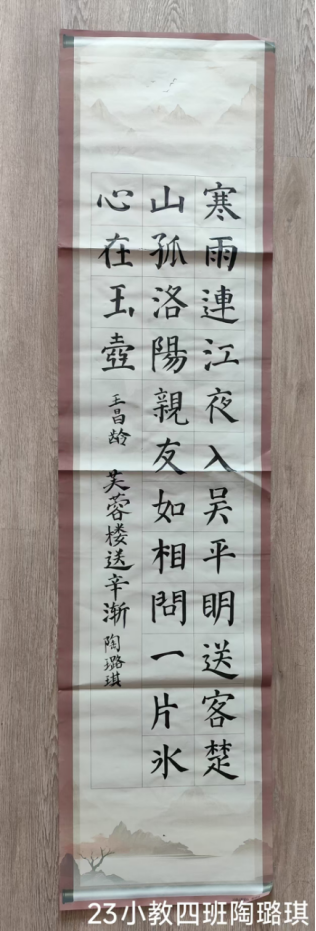 寒雨連江夜入吴平明送客楚
山孤洛陽親友如相問一片氷
心在玉壺 王昌龄 芙蓉楼送辛渐 陶璐琪
23小教四班陶璐琪